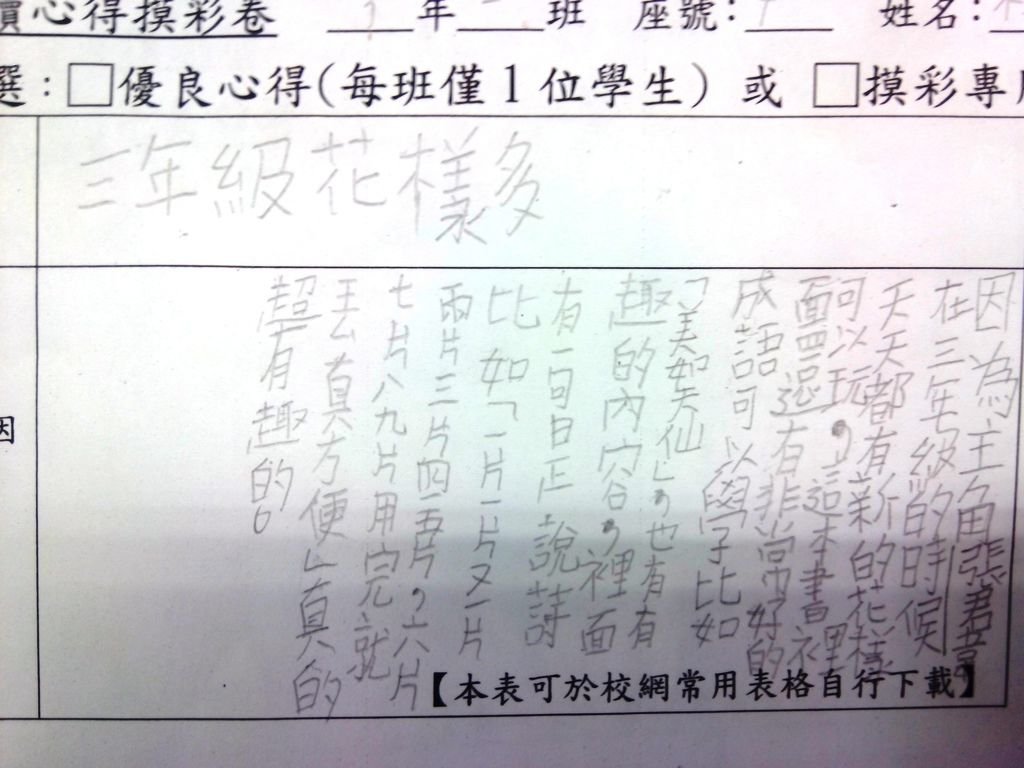 心得摸彩卷 年 班 座號： 姓名：
選：□優良心得(每班僅1位學生) 或 □摸彩專
三年級花樣多
因為主角張君
在三年級的時候
天天都有新的花樣
可以玩，這本書裡
面還有非常好的
成語可以學比如
「美如天仙」，也有有
趣的內容，裡面
有一句 說詩
比如「一片一片又一片
兩片三片四五片，六片
七片八九片用完就
丟真方便」真的
超有趣的。
因
【本表可於校網常用表格自行下載】